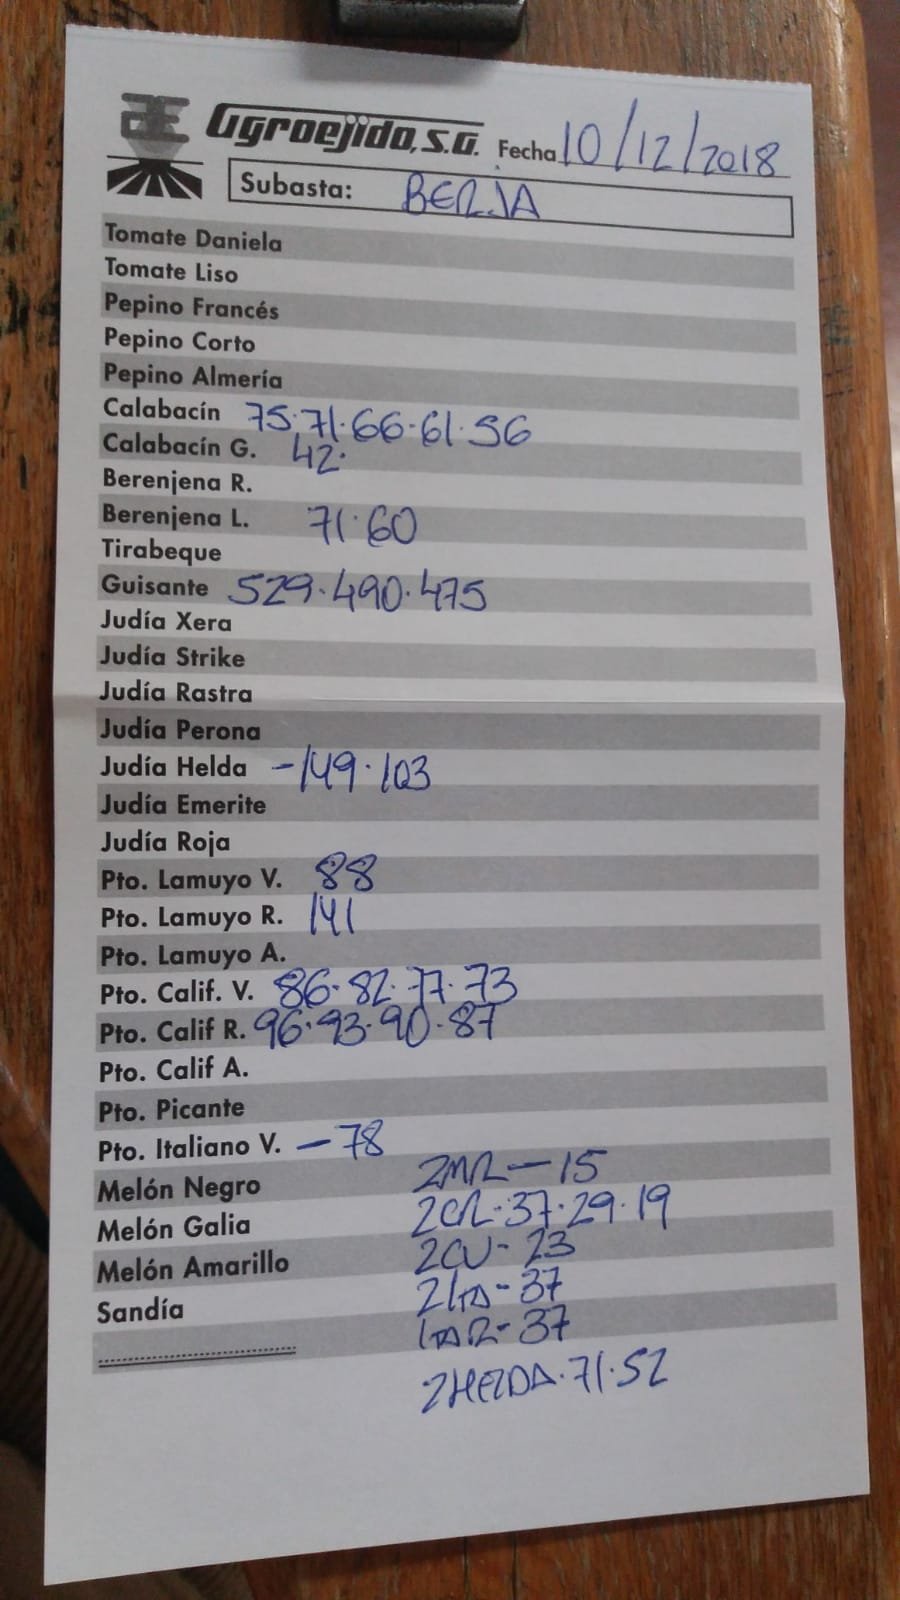 Agroejido, S.A. Fecha 10/12/2018
Subasta: BERJA
Tomate Daniela
Tomate Liso
Pepino Francés
Pepino Corto
Pepino Almería
Calabacín 75·71·66·61·56
Calabacín G. 42·
Berenjena R.
Berenjena L. 71·60
Tirabeque
Guisante 529·490·475
Judía Xera
Judía Strike
Judía Rastra
Judía Perona
Judía Helda -149·103
Judía Emerite
Judía Roja
Pto. Lamuyo V. 88
Pto. Lamuyo R. 141
Pto. Lamuyo A.
Pto. Calif. V. 86·82·77·73
Pto. Calif R. 96·93·90·87
Pto. Calif A.
Pto. Picante
Pto. Italiano V. - 78
Melón Negro
Melón Galia
Melón Amarillo
Sandía
2MR - 15
2CR - 37·29·19
2CV - 23
2ITA - 37
37
71·52